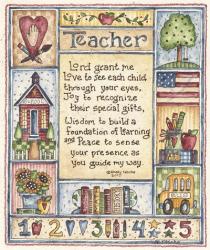 Teacher
Lord grant me
Love to see each child
through your eyes,
Joy to recognize
their special gifts,
Wisdom to build a
foundation of learning
and Peace to sense
your presence as
you guide my way.
1 2 3 4 5